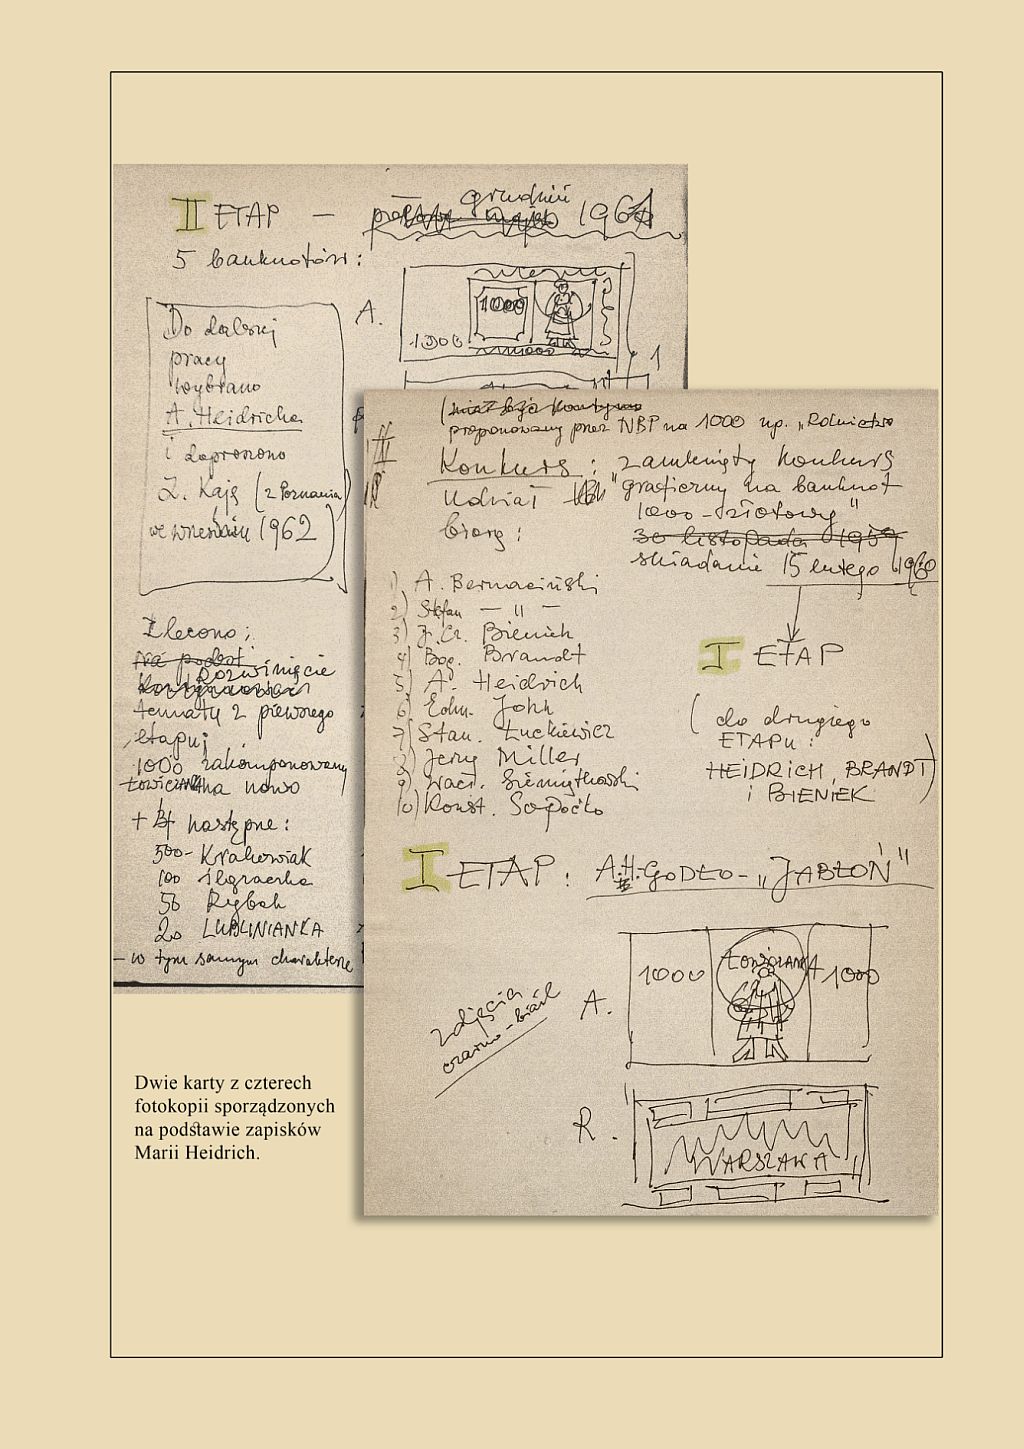 II ETAP – grudzień 1961
5 banknotów:
Do dalszej
pracy
wybrano
A. Heidricha
i doproszono
Z. Kaję (z Poznania)
we wrześniu 1962
A.
1000
1000
1000
1
Zlecono:
na podst.
rozwinięcie
tematu z pierwszego
etapu;
1000 zakomponowany
na nowo
+ następne:
500- Krakowiak
100
50 Rybak
20 LUBLINIANKA
– w tym samym charakterze
proponowany przez NBP na 1000 np. „Rolnictwo
Konkurs: „zamknięty konkurs
graficzny na banknot
1000-złotowy"
30 listopada 1959
składanie 15 lutego 1960
Udział
biorą:
1) A. Bernaciński
2) Stefan — " —
3) J. Cz. Bieniek
4) Bog. Brandt
5) A. Heidrich
6) Edm. John
7) Stan. Łuckiewicz
8) Jerzy Miller
9) Wacł. Siemiątkowski
10) Konst. Sopoćko
I ETAP
(do drugiego
ETAPU:
HEIDRICH, BRANDT
i BIENIEK)
I ETAP: A.H. GODŁO – „JABŁOŃ"
zdjęcia
czarno-białe
A.
1000 ŁOWICZANKA 1000
R.
WARSZAWA
Dwie karty z czterech
fotokopii sporządzonych
na podstawie zapisków
Marii Heidrich.